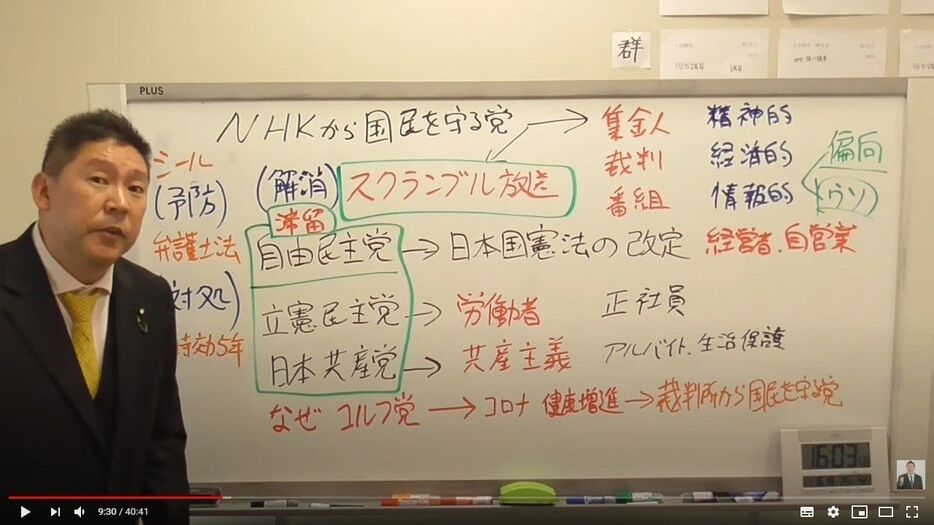 群
PLUS
NHKから国民を守る党
シール
(予防)
弁護士法
対処)
時効5年
(解消)
滞留
スクランブル放送
集金人 精神的
裁判 経済的
番組 情報的
偏向
(ウソ)
自由民主党→日本国憲法の改定 経営者、自営業
立憲民主党→労働者 正社員
日本共産党→共産主義 アルバイト、生活保護
なぜ ゴルフ党→コロナ 健康増進→裁判所から国民を守る党
16:03
9:30 / 40:41